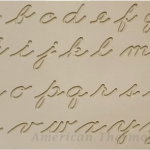 b c d e f g
i j k l m
o p q r s
v w x y
American Thermal